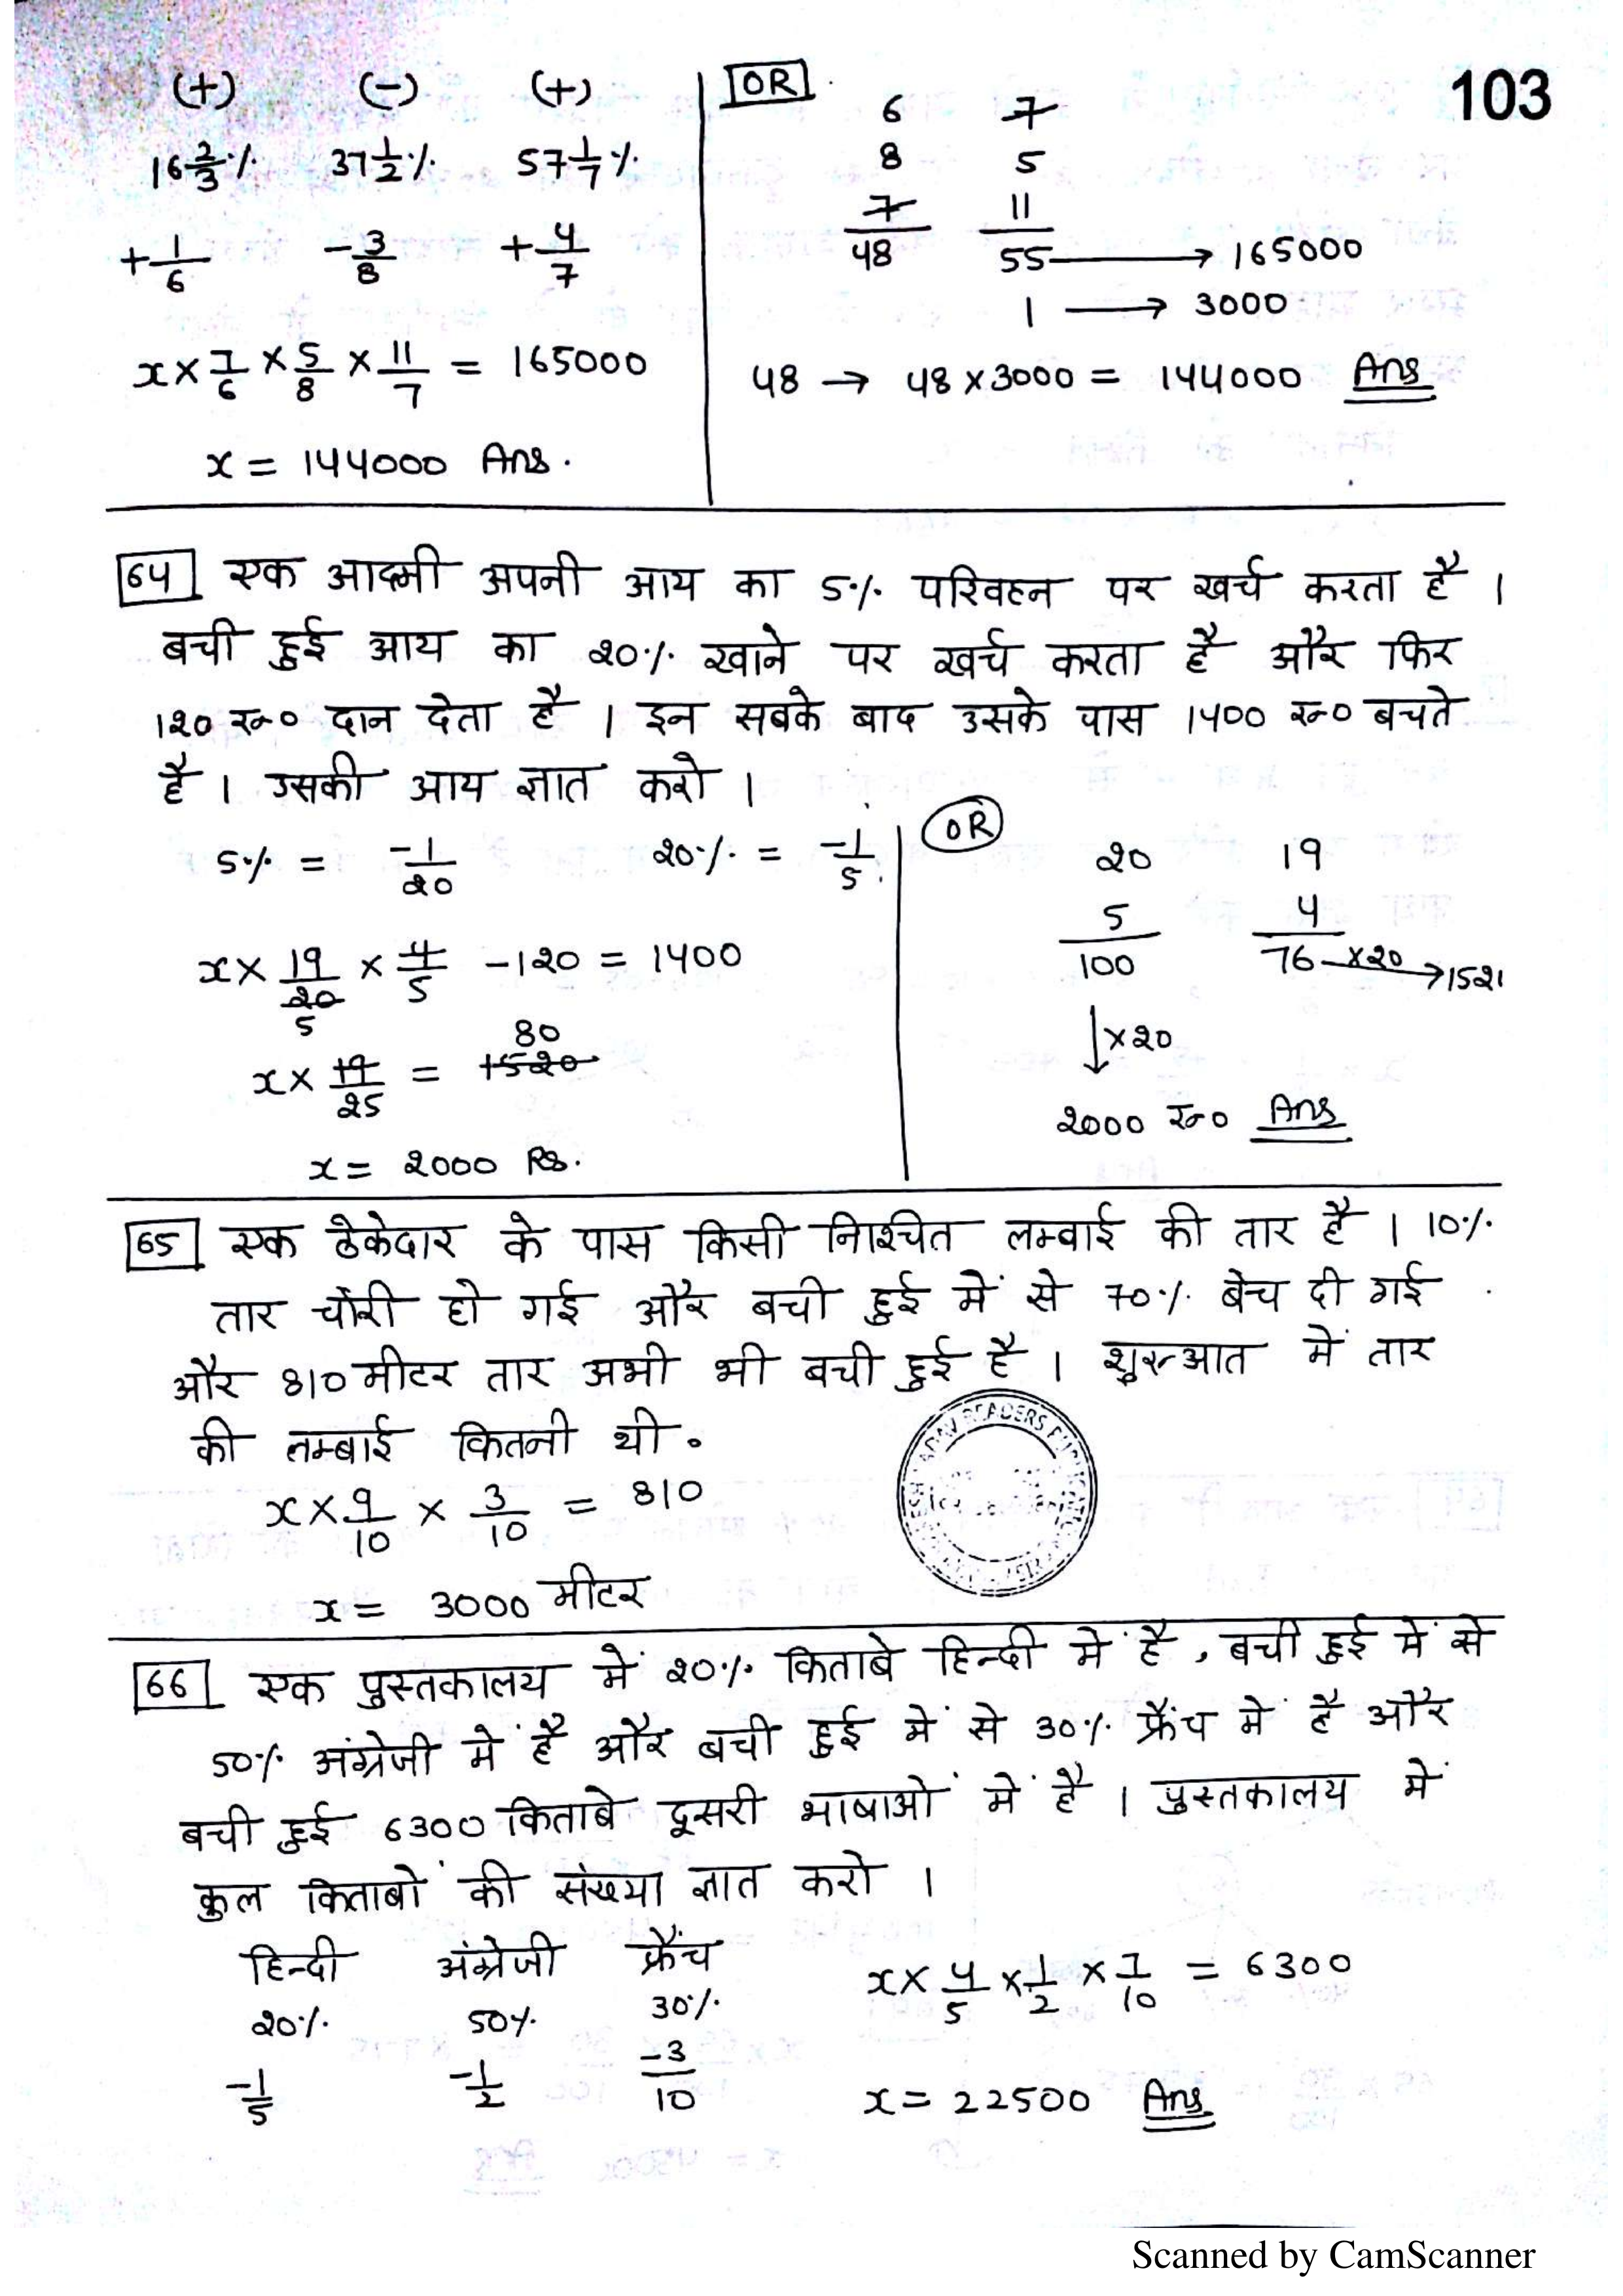 103
(+) (-) (+)
16 2/3 % 37 1/2 % 57 1/7 %
+1/6 -3/8 +4/7
x × 7/6 × 5/8 × 11/7 = 165000
x = 144000 Ans.
OR
6 7
8 5
7 11
48 55 → 165000
1 → 3000
48 → 48 × 3000 = 144000 Ans
64 एक आदमी अपनी आय का 5% परिवहन पर खर्च करता है ।
बची हुई आय का 20% खाने पर खर्च करता है और फिर
120 रु० दान देता है । इन सबके बाद उसके पास 1400 रु० बचते
है । उसकी आय ज्ञात करो ।
5% = -1/20 20% = -1/5
x × 19/20 × 4/5 - 120 = 1400
5
80
x × 19/25 = 1520
x = 2000 Rs.
OR
20 19
5 4
100 76 ×20 → 152
↓ ×20
2000 रु० Ans
65 एक ठेकेदार के पास किसी निश्चित लम्बाई की तार है । 10%
तार चोरी हो गई और बची हुई में से 70% बेच दी गई
और 810 मीटर तार अभी भी बची हुई है । शुरुआत में तार
की लम्बाई कितनी थी.
x × 9/10 × 3/10 = 810
x = 3000 मीटर
READERS
66 एक पुस्तकालय में 20% किताबे हिन्दी में है, बची हुई में से
50% अंग्रेजी में है और बची हुई में से 30% फ्रैंच में है और
बची हुई 6300 किताबे दूसरी भाषाओं में है । पुस्तकालय में
कुल किताबों की संख्या ज्ञात करो ।
हिन्दी अंग्रेजी फ्रैंच
20% 50% 30%
-1/5 -1/2 -3/10
x × 4/5 × 1/2 × 7/10 = 6300
x = 22500 Ans
Scanned by CamScanner